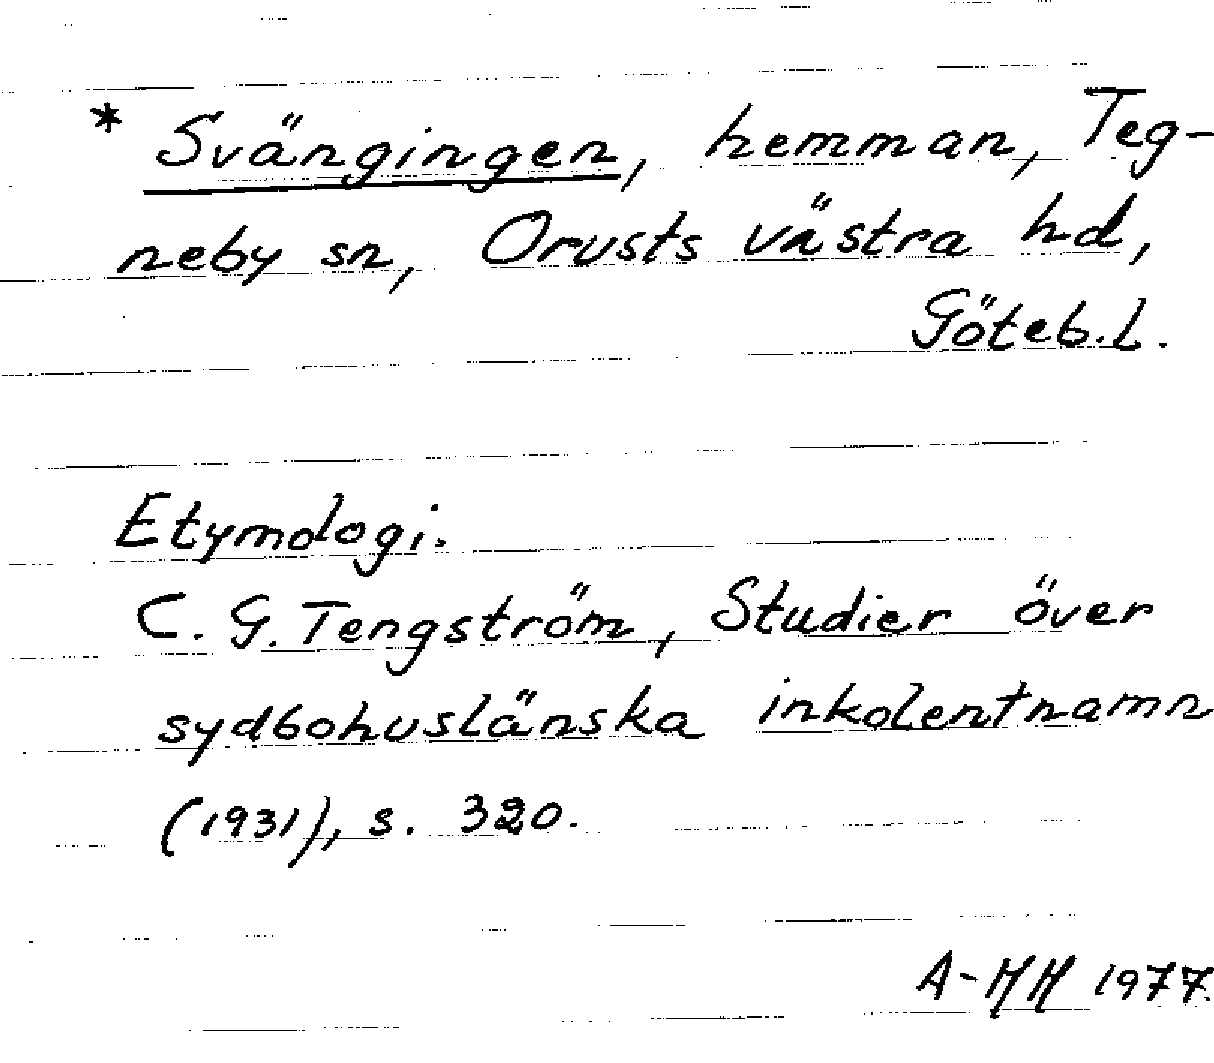 * Svängingen, hemman, Teg-
neby sn, Orusts västra hd,
Göteb.l.
Etymologi.
C. G. Tengström, Studier över
sydbohuslänska inkolentnamn
(1931), s. 320.
A-MH 1977.